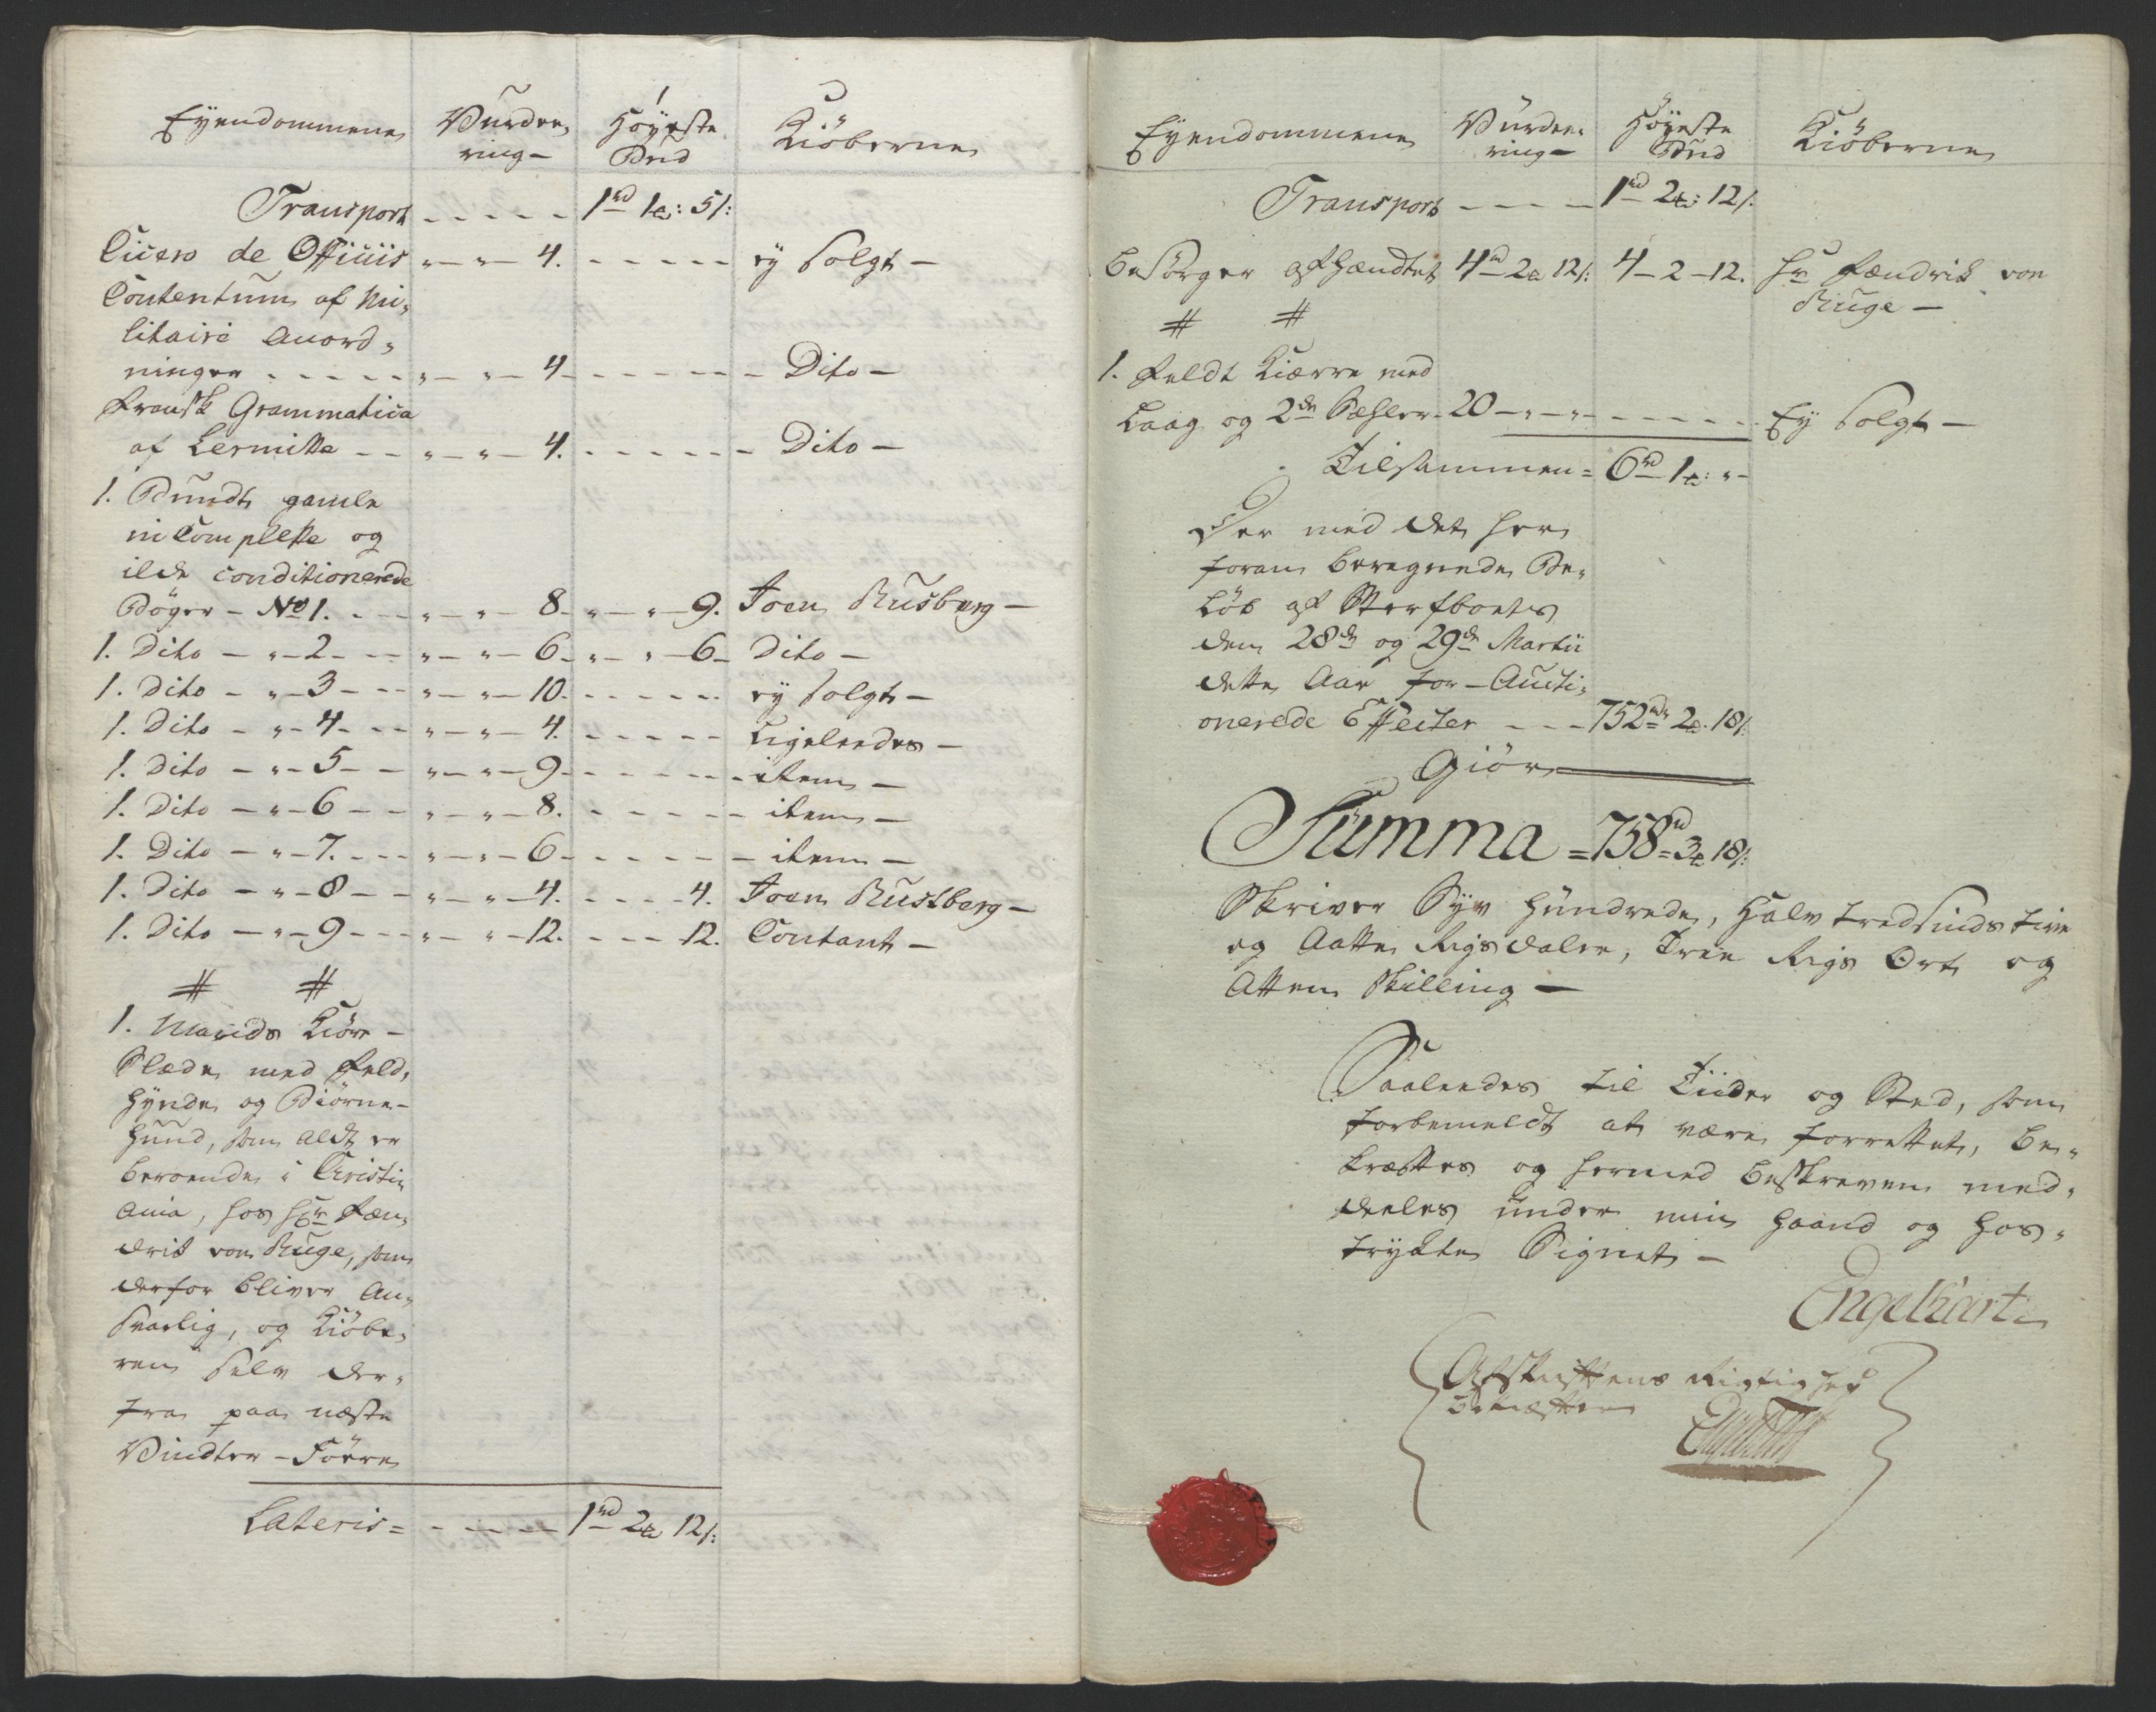 Eyendommene Vurde- Høyeste Kiøberne
ring - Bud
Transport - - - - - 1 rd 1 ort: 5 s:
Cicero de Officiis " - " - 4. - - - - - ey solgt -
Contentum af Mi-
litaire Anord-
ninger - - - - - " - " - 4 - - - - - - Dito -
Fransk Grammatica
af Lermitte - - " - " - 4. - - - - - - Dito -
1. Bundt gamle
incomplette og
ilde conditionerede
Bøger - No 1. - - " - " - 8 - " - " - 9. Joen Rusberg -
1. Dito - " - 2 - - - " - " - 6 - " - " - 6 - Dito -
1. Dito - " - 3 - - - " - " - 10. - - - - - ey solgt -
1. Dito - " - 4 - - - " - " - 4. - - - - - Ligeleedes -
1. Dito - " - 5 - - " - " - 9 - - - - - - item -
1. Dito - " - 6 - - " - " - 8. - - - - - item -
1. Dito - " - 7. - - - " - " - 6 - - - - - - item -
1. Dito - " - 8 - - " - " - 4. - - - - 4. Joen Rustberg -
1. Dito - " - 9 - - - " - " - 12. - - - 12. Contant -
# #
1. Mands Kiøre-
Slæde med Feld,
Hynde og Biørne-
hund, som aldt er
beroende i Christi-
ania, hos Hr Fæn-
drik von Ruge, som
derfor bliver An-
svarlig, og Kiøbe-
ren selv der-
fra paa næste
Vindter-Føere
Lateris = - - - - 1 rd 2 ort 12 s:
Eyendommene Vurde- Høyeste Kiøberne
ring - Bud
Transport - - - - 1 rd 2 ort: 12 s:
besørger afhændtet 4 rd 2 ort 12 s: 4 - 2 - 12. Hr Fændrik von
Ruge -
# #
1. Feldt Kiærre med
Laag og 2de Sæhler - 20 - " - " - - - - - Ey solgt -
Tilsammen = 6 rd 1 ort: " -
Der med det her
foran beregnede Be-
løb af Sterfboets
den 28de og 29de Martii
dette Aar for-Aucti-
onerede Effecter - - - 752 rdr 2 ort 18 s:
Giør
Summa = 758 rd 3 ort 18 s:
Skriver Syv Hundrede, Halvtredsinds tive
og Aatte Rigsdaler, Tree Rigs Ort og
Atten Skilling -
Saaleedes til Tiider og Sted, som
forbemeldt at være forrettet, be-
kræftes og hermed beskreven med-
deeles under min Haand og hos-
trykte Signet -
Engelhart
Afskriftens Rigtighed
bekræfter
Engelhart